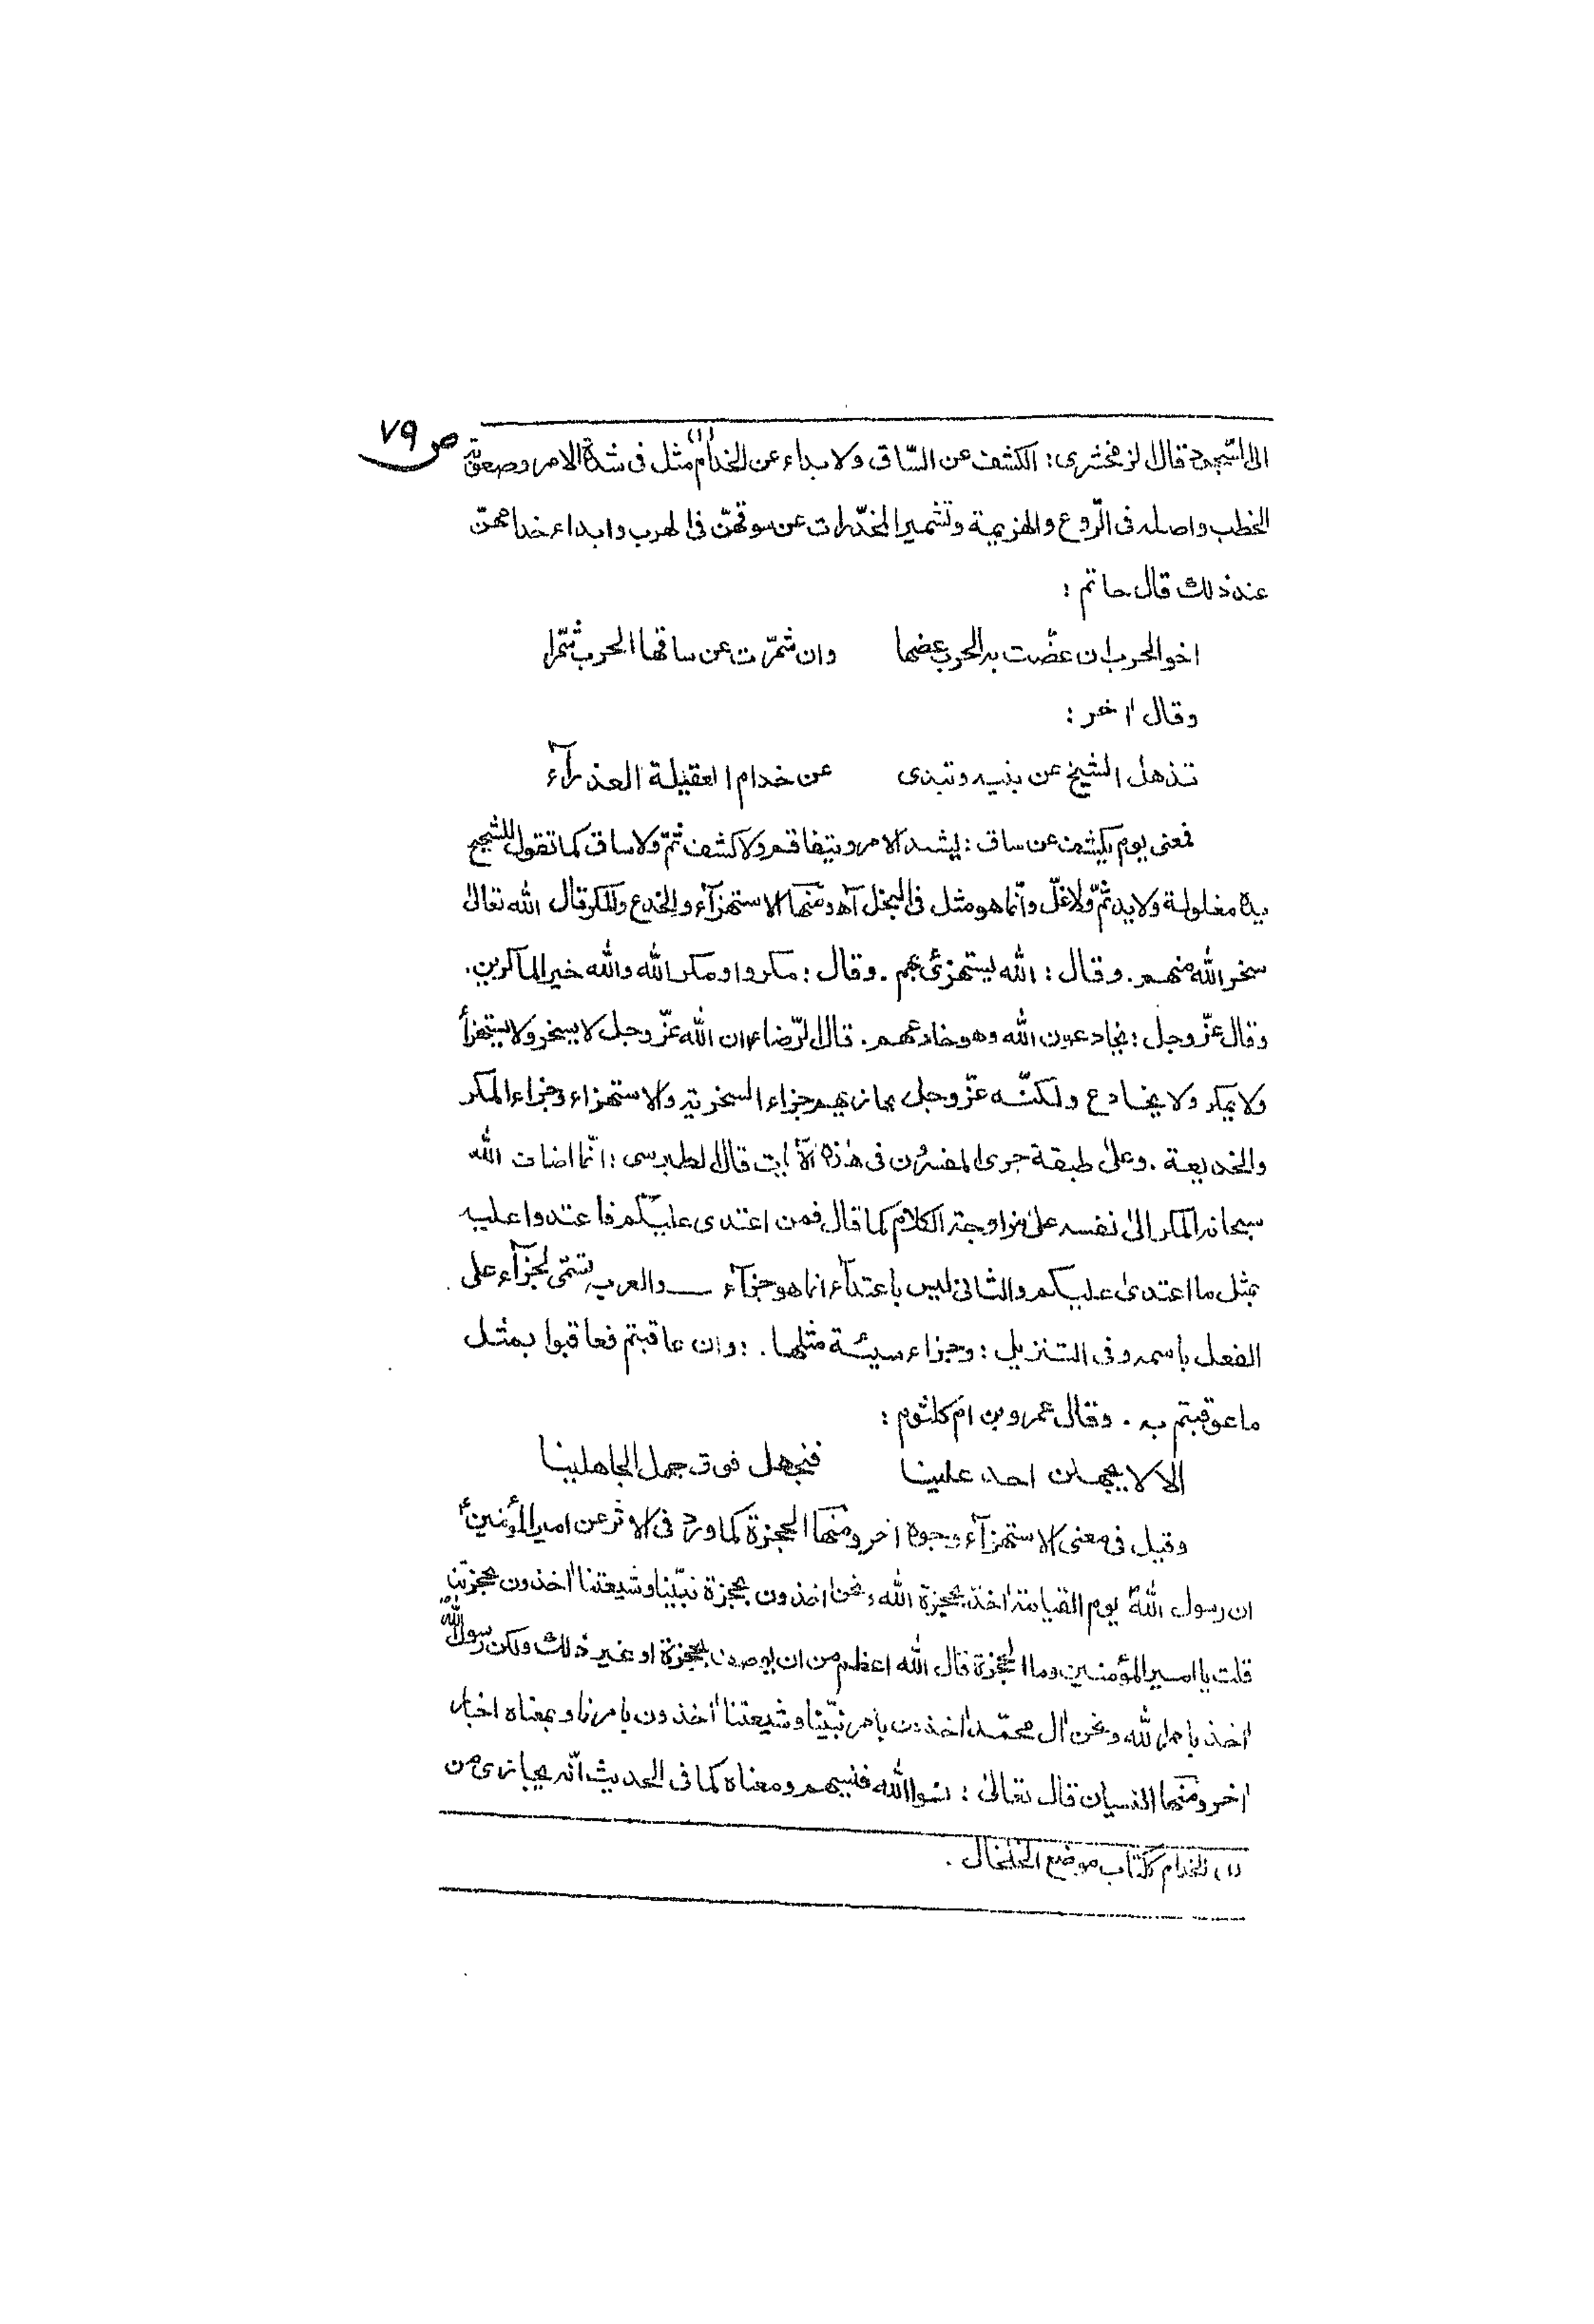 ص ٧٩
الى السّجود قال الزمخشرى : الكشف عن السّاق والابداء عن الخدام (١) مثل فى شدة الامر وصعوبة
الخطب واصله فى الرّوع والهزيمة وتشمير المخدّرات عن سوقهنّ فى الهرب وابداء خدامهنّ
عند ذلك قال حاتم :
اخو الحرب ان عضّت به الحرب عضها وان شمّرت عن ساقها الحرب شمّرا
وقال اخر :
تذهل الشيخ عن بنيه وتبدى عن خدام العقيلة العذراء
فمعنى يوم يكشف عن ساق : يشتد الامر ويتفاقم ولا كشف ثمّ ولا ساق كما تقول للشحيح
يده مغلولة ولا يد ثمّ ولا غلّ وانّما هو مثل فى البخل اه ومنها الاستهزآء والخدع والمكر قال الله تعالى
سخر الله منهم . وقال : الله يستهزئ بهم . وقال : مكروا ومكر الله والله خير الماكرين .
وقال عزّ وجل : يخادعون الله وهو خادعهم . قال الرّضاء ان الله عزّ وجل لا يسخر ولا يستهزأ
ولا يمكر ولا يخادع ولكنّه عزّ وجل يجازيهم جزاء السخرية والاستهزاء وجزاء المكر
والخديعة . وعلى طبقة جرى المفسرون فى هذه الآيات قال الطبرسى : انّما اضاف الله
سبحانه المكر الى نفسه على مزاوجة الكلام كما قال فمن اعتدى عليكم فاعتدوا عليه
بمثل ما اعتدى عليكم والثانى ليس باعتدآء انما هو جزآء ـــ والعرب تسمّى الجزآء على
الفعل باسمه وفى التنزيل : وجزاء سيئة مثلها . : وان عاقبتم فعاقبوا بمثل
ما عوقبتم به . وقال عمرو بن ام كلثوم :
الا لا يجهلن احد علينا فنجهل فوق جهل الجاهلينا
وقيل فى معنى الاستهزآء وجوه اخر ومنها الحجزة كما ورد فى الاثر عن امير المؤمنينؑ
ان رسول اللهؐ يوم القيامة اخذ بحجزة الله ونحن اخذون بحجزة نبيّنا وشيعتنا اخذون بحجزتنا
قلت يا امير المؤمنين وما الحجزة قال الله اعظم من ان يوصف بحجزة او غير ذلك ولكن رسول اللهؐ
اخذ بامر الله ونحن ال محمّد اخذون بامر نبيّنا وشيعتنا اخذون بامرنا وبمعناه اخبار
اخر ومنها النسيان قال تعالى : نسوا الله فنسيهم ومعناه كما فى الحديث انّه يجازى من
(١) الخدام ككتاب موضع الخلخال .